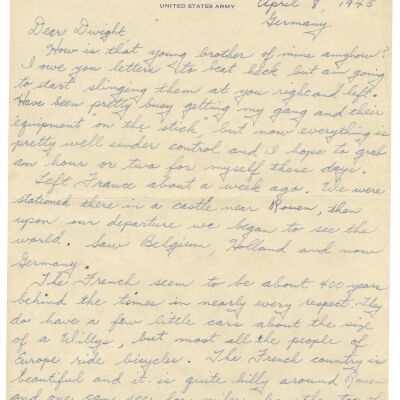 UNITED STATES ARMY
April 8, 1945
Germany
Dear Dwight,
How is that young brother of mine anyhow?
I owe you letters to beat heck but am going
to start slinging them at you right and left.
Have been pretty busy getting my gang and their
equipment "on the stick", but now everything is
pretty well under control and I hope to grab
an hour or two for myself these days.
Left France about a week ago. We were
stationed there in a castle near Rouen, then
upon our departure we began to see the
world. Saw Belgium, Holland and now
Germany.
The French seem to be about 400 years
behind the times in nearly every respect. They
do have a few little cars about the size
of a Willys, but most all the people of
Europe ride bicycles. The French country is
beautiful and it is quite hilly around Rouen
and one can see for miles